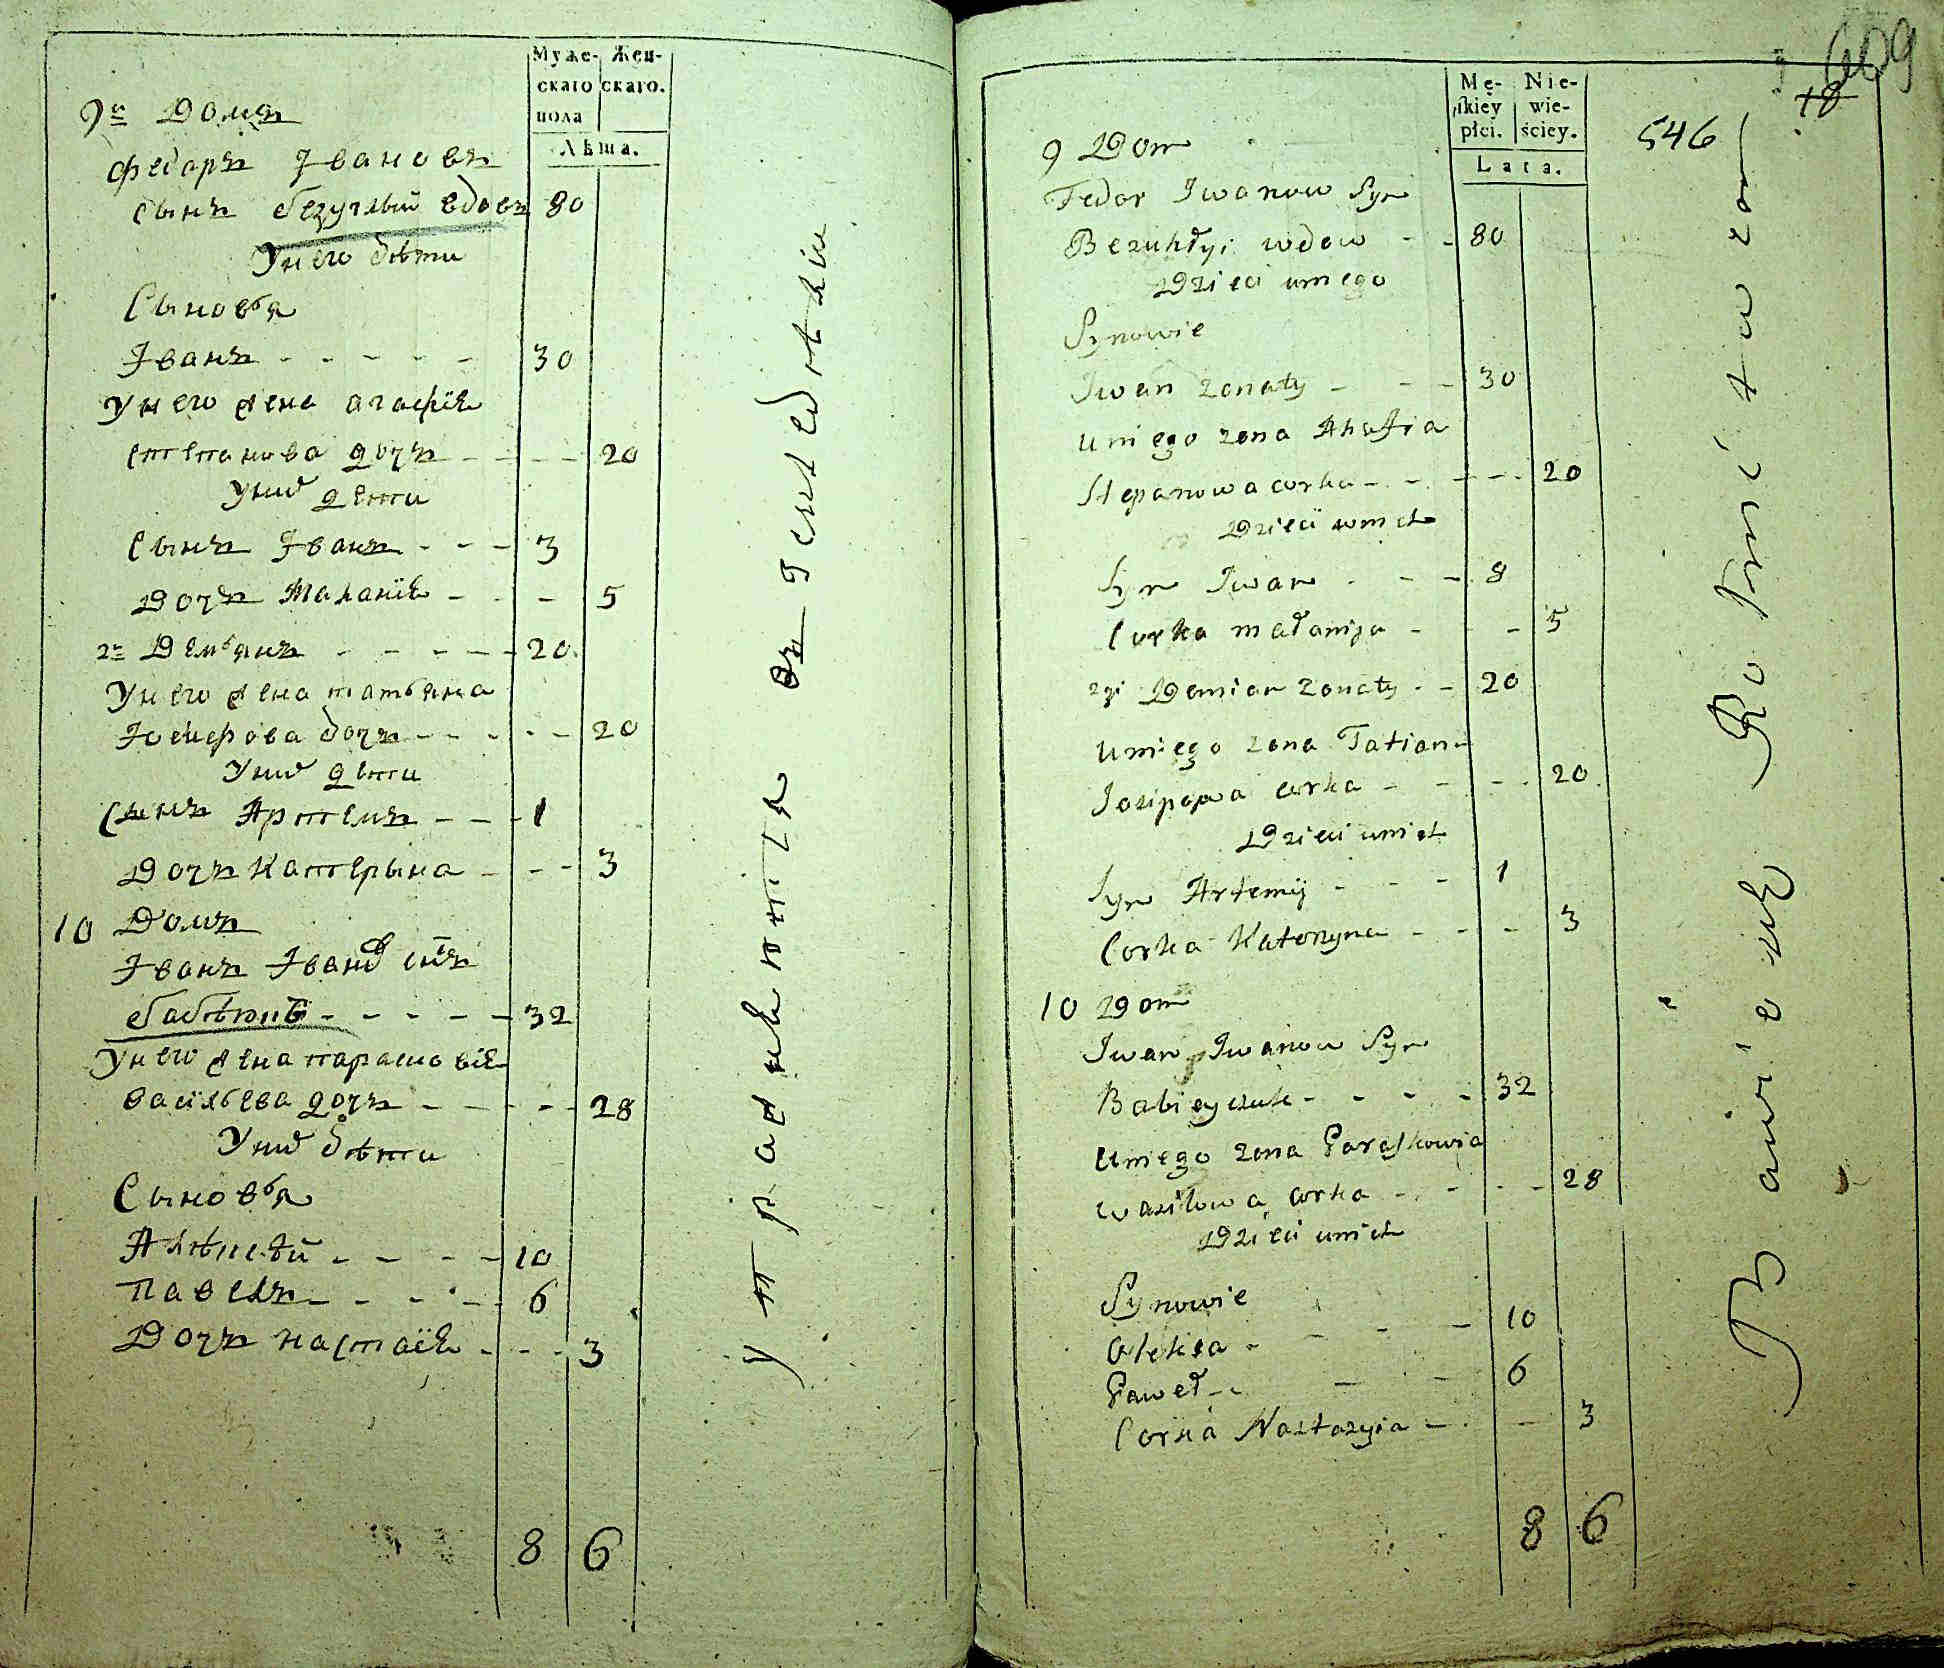 Муже-
скаго
пола
Жен-
скаго.
Лѣта.
9й Домъ
Федоръ Ивановъ
Сынъ безуглый вдовъ 80
У него дѣти
Сыновья
Иванъ - - - - - 30
У него жена агафия
степанова дочъ - - - - 20
У них дети
Сынъ Иванъ - - - 3
Дочъ Маланія - - - 5
2й Демьянъ - - - - - 20
У него жена татьяна
Іосифова дочъ - - - - - 20
У них дети
Сынъ Артемъ - - - 1
Дочъ Катерына - - - 3
10 Домъ
Иванъ Иванов снъ
- - - - - 32
У него жена парасковія
васильева дочъ - - - - - 28
У них дѣти
Сыновья
Алексѣй - - - - 10
Павелъ - - - - - 6
Дочъ настасія - - - 3
8 6
Mę-
skiey
płci.
Nie-
wie-
ściey.
Lata.
609
18
546
9 Dom
Fedor Iwanow Syn
Bezuhłyi wdow - - 80
Dzieci u niego
Synowie
Iwan zonaty - - - 30
U niego zona Ahafia
Stepanowa corka - - - - - 20
Dzieci u nich
Syn Iwan - - - 8
Corka małanija - - - 5
2gi Demian zonaty - - 20
U niego zona Tatian
Jozipowa corka - - - - 20
Dzieci u nich
Syn Artemij - - - 1
Corka Katerzyna - - - 3
10 Dom
Iwan Iwanow Syn
Babieyczuk - - - - 32
U niego zona Paraskowia
Wasilowa corka - - - - 28
Dzieci u nich
Synowie
Oleksa - - - - 10
Paweł - - - - 6
Corka Nastazyia - - - 3
8 6